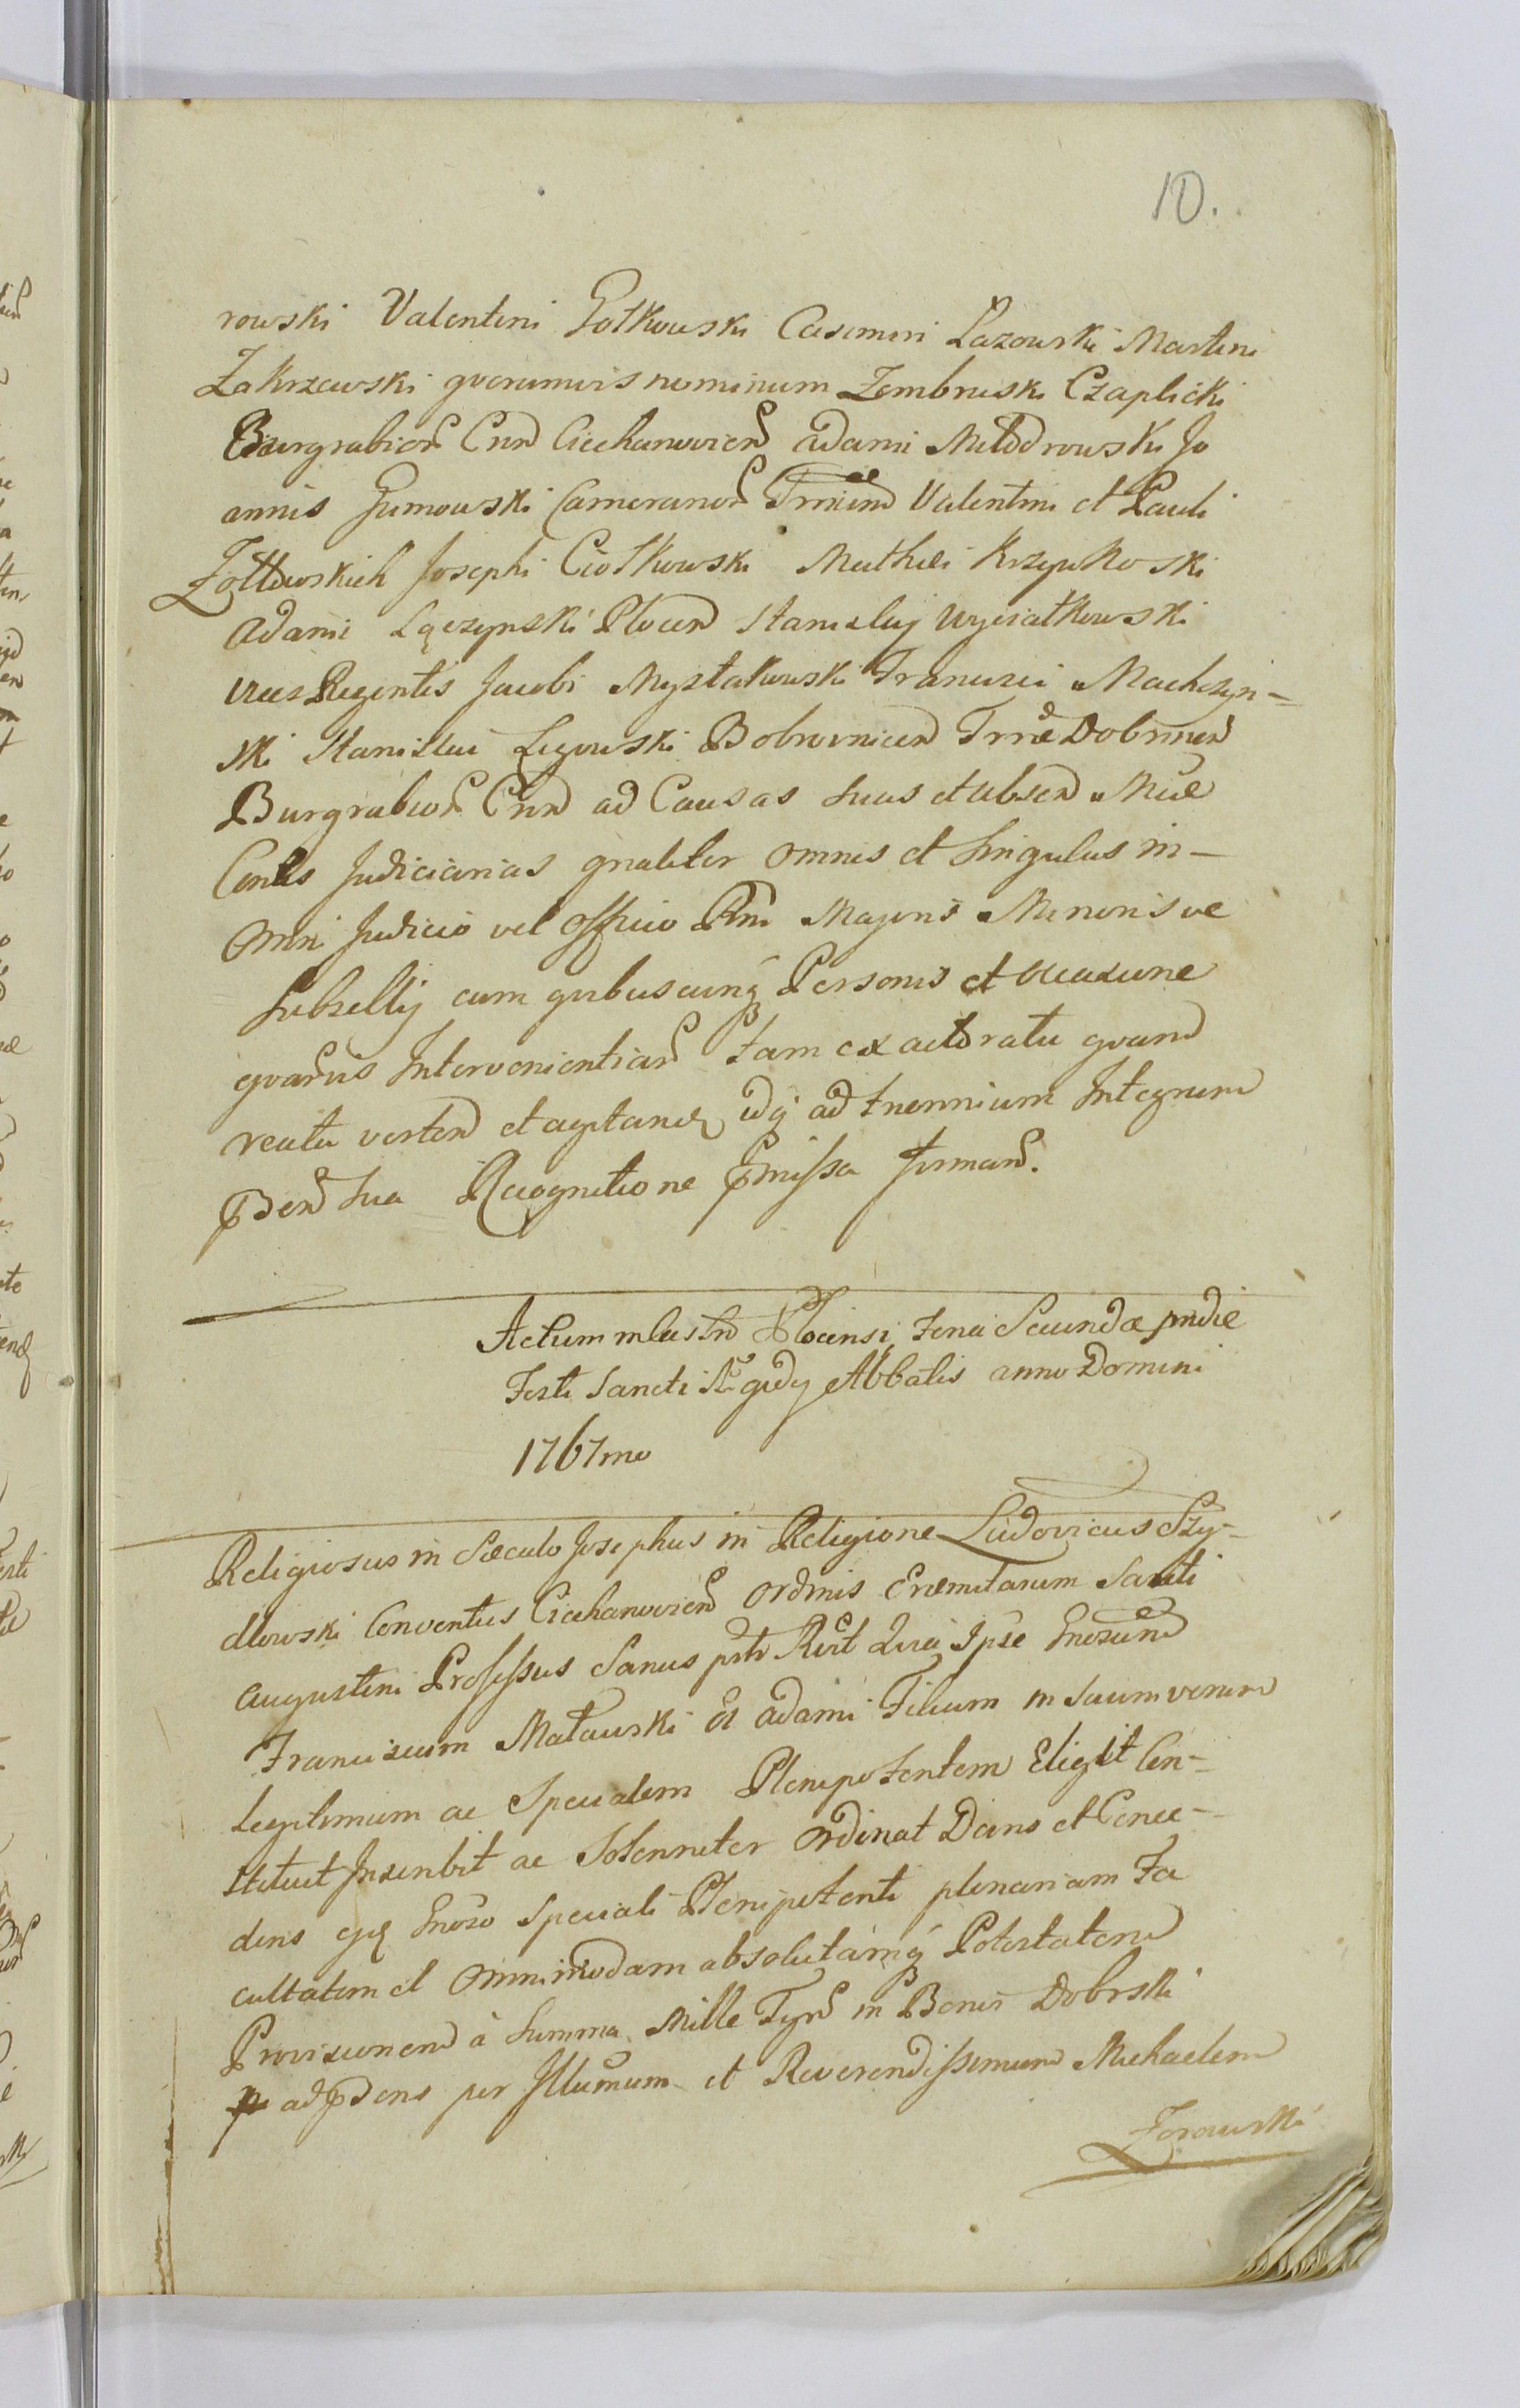 10.
rowski Valentini Gotkowski Casimiri Lazowski Martini
Zakrzewski qvorumvis nominum Zembruski Czaplicki
Burgrabior Cnn Ciechanovien Adami Młodrowski Jo
annis Gumowski Cameranor Valentini et Pauli
Żołtowskich Josephi Ciołkowski Mathei Krzynkowski
Adami Łączynski Plocen Stanislaj Wyciałkowski
vices Regentis Jacobi Mysłakowski Francisci Machczyn-
ski Stanislai Łęgowski Bobrovnicen Trrae Dobrinen
Burgrabior Cnn ad Causas suas et absen
Contis Judiciarias gnaliter omnes et singulas in-
omni Judicio vel Officio Rni Majoris Minorisve
Subsellij cum qvibuscunq Personis et occasione
qvarvis Intervenientiar tam ex actoratu qvam
reatu verten et agitandas idq ad triennium Integrum
pBen sua Recognitione pmissa firman.
Actum in Castro Plocensi, Feria Secunda pridie
Festi Sancti Ægidij Abbatis anno Domini
1767mo
Religiosus in Sæculo Josephus in Religione Ludovicus Szy-
dłowski Conventus Ciechanovien ordinis Eremitarum Sancti
Augustini Professus Sanus psts Rect Quia Ipse Gnosum
Franciscum Małowski olim Adami Filium in Suum verum
Legitimum ac Specialem Plenipotentem Eligit Con-
stituit Inscribit ac Solenniter ordinat Dans et Conce-
dens ejd Gnoso Speciali Plenipotenti plenariam Fa
cultatem et omnimodam absolutamq Potestatem
Provisionem à Summa Mille Tynf in Bonis Dobrski
adpdens per Illumum et Reverendissimum Michaelem
Zorawski